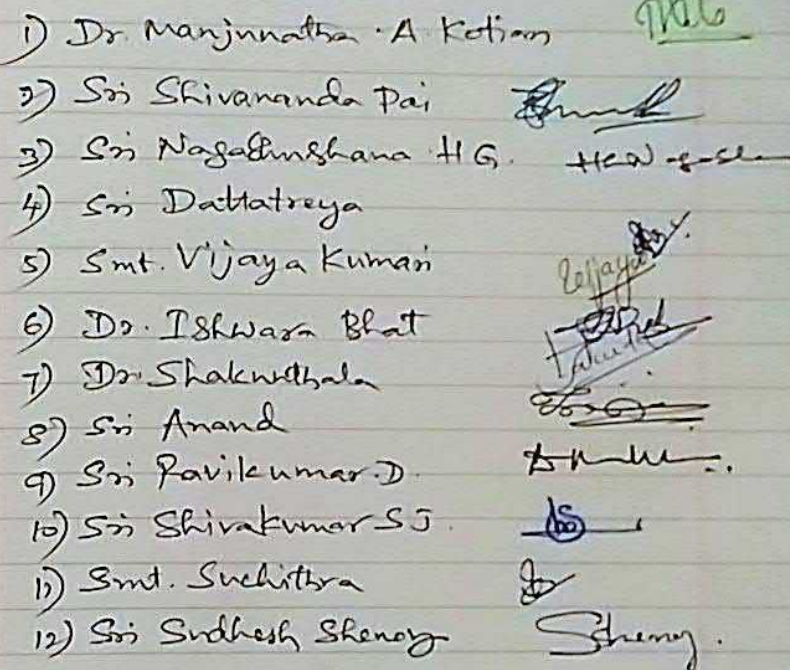 1) Dr. Manjunnatha . A Kotian
2) Sri Shivananda Pai
3) Sri Nagabhushana H G.
4) Sri Dattatreya
5) Smt. Vijaya Kumari
6) Dr. Ishwara Bhat
7) Dr. Shakunthala
8) Sri Anand
9) Sri Ravikumar.D.
10) Sri Shivakumar S J.
11) Smt. Suchithra
12) Sri Sudhesh Shenoy Shenoy.